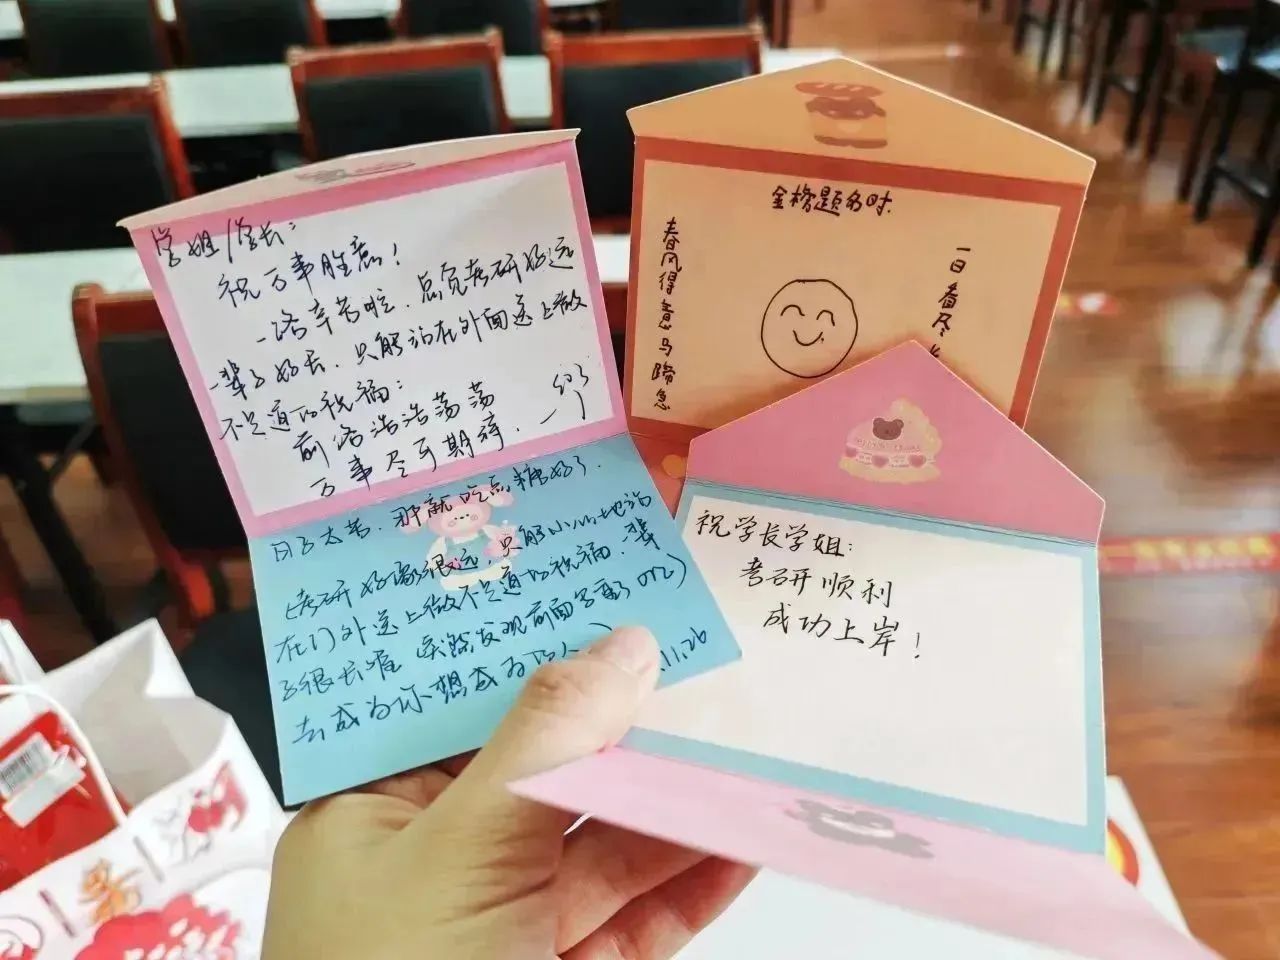 学姐/学长：
祝万事胜意！
一路辛苦啦．总觉考研好远
一辈子好长．只能站在外面送上微
不足道的祝福：
前路浩浩荡荡
万事尽可期待．
日子太苦．那就吃点糖好了．
(考研好像离很远，只能小小地站
在门外送上微不足道的祝福．一辈
子很长喔 突然发现前面写重了orz)
去成为你想成为的人
.11.26
金榜题名时．
春风得意马蹄急
一日看尽长
祝学长学姐：
考研顺利
成功上岸！